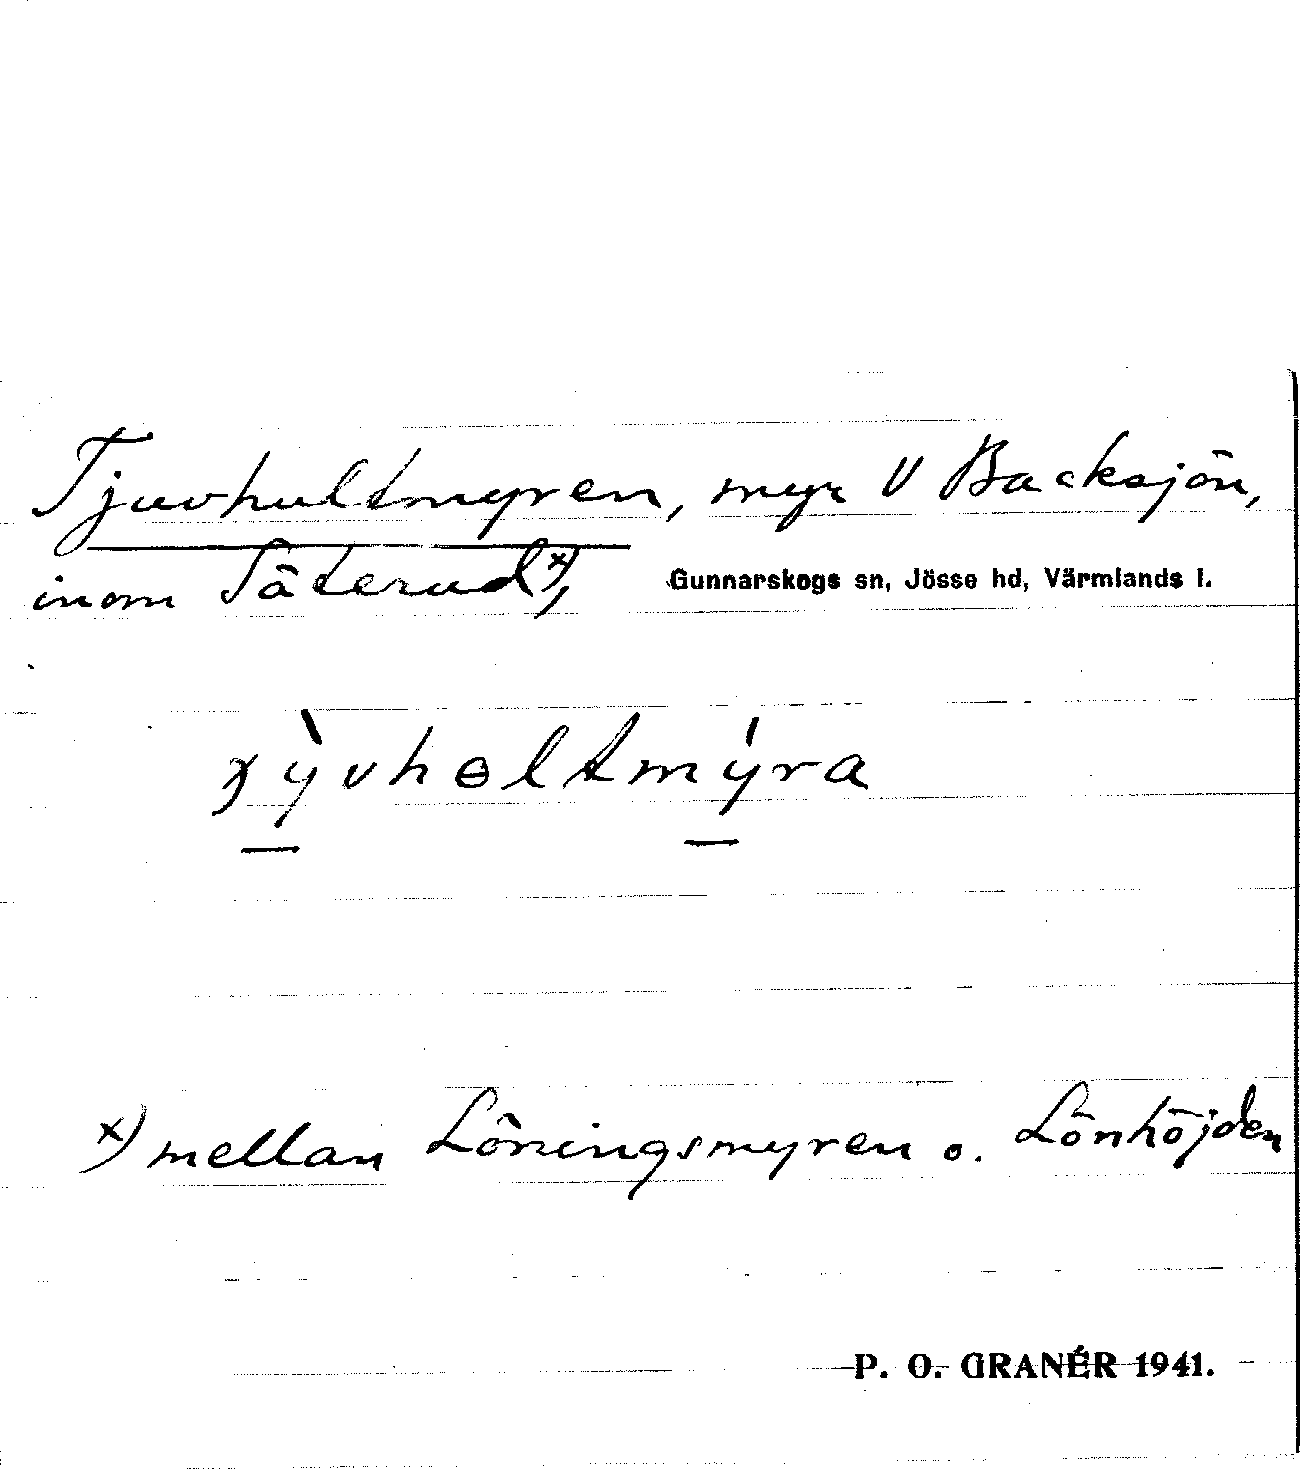 Tjuvhultmyren, myr V Backsjön,
inom Säterud x), Gunnarskogs sn, Jösse hd, Värmlands l.
ỳvhɵltmýra
x) mellan Löningsmyren o. Lönhöjden
P. O. GRANÉR 1941.